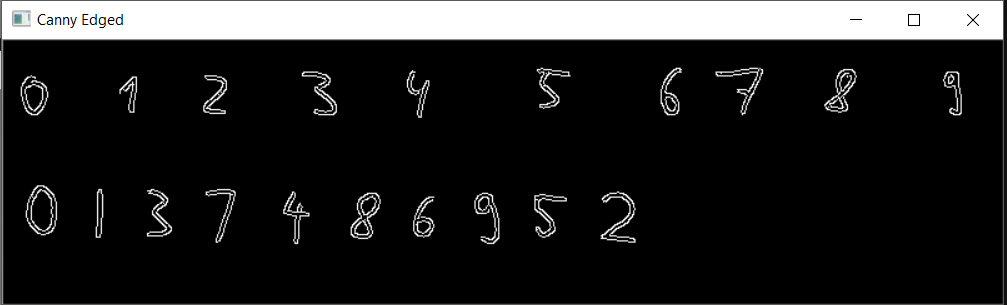 Canny Edged
0 1 2 3 4 5 6 7 8 9
0 1 3 7 4 8 6 9 5 2